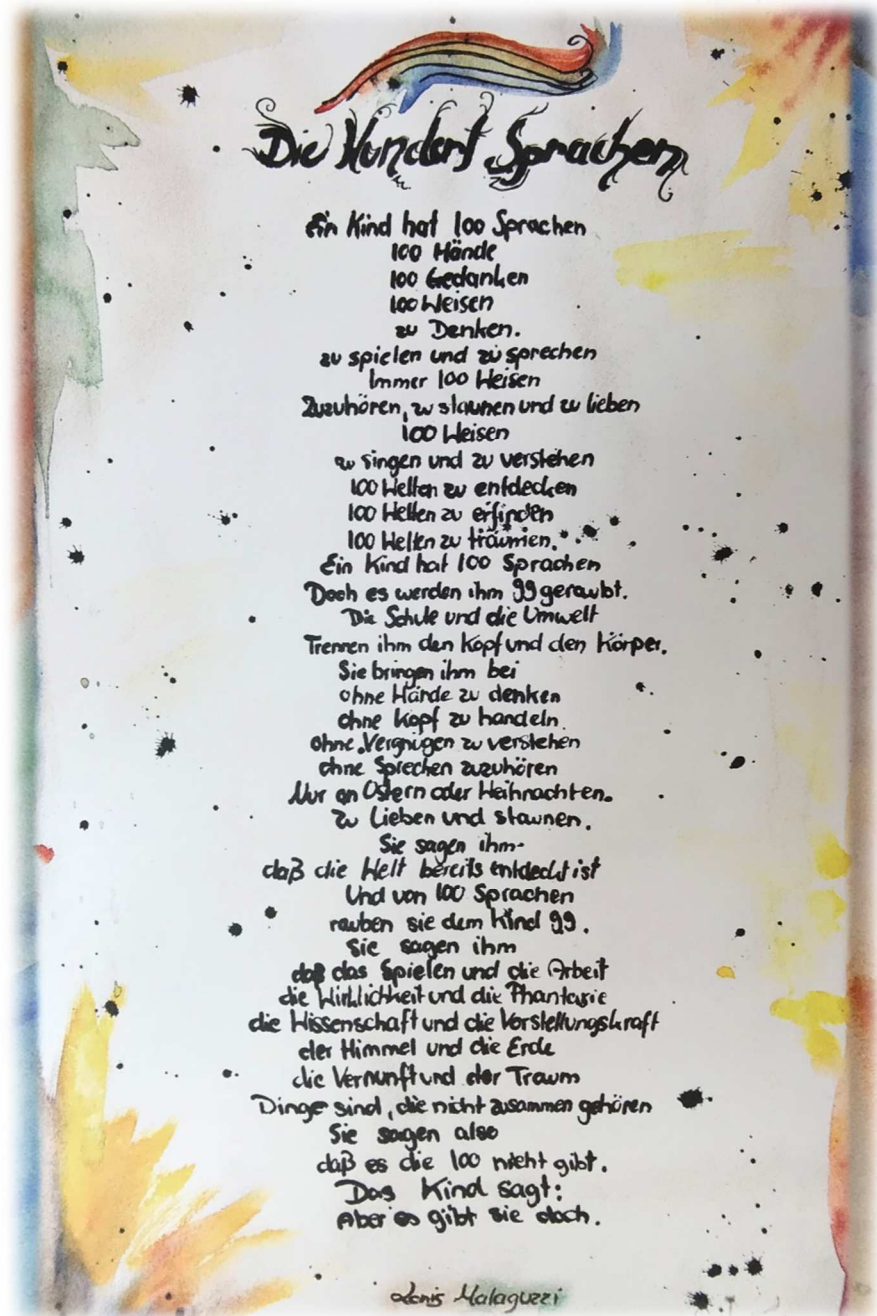 Die Hundert Sprachen
Ein Kind hat 100 Sprachen
100 Hände
100 Gedanken
100 Weisen
zu Denken.
zu spielen und zu sprechen
Immer 100 Weisen
Zuzuhören, zu staunen und zu lieben
100 Weisen
zu singen und zu verstehen
100 Welten zu entdecken
100 Welten zu erfinden
100 Welten zu träumen.
Ein Kind hat 100 Sprachen
Doch es werden ihm 99 geraubt.
Die Schule und die Umwelt
Trennen ihm den Kopf und den Körper.
Sie bringen ihm bei
ohne Hände zu denken
ohne Kopf zu handeln
ohne Vergnügen zu verstehen
ohne Sprechen zuzuhören
Nur an Ostern oder Weihnachten.
Zu Lieben und staunen.
Sie sagen ihm-
daß die Welt bereits entdeckt ist
Und von 100 Sprachen
rauben sie dem Kind 99.
Sie sagen ihm
daß das Spielen und die Arbeit
die Wirklichkeit und die Phantasie
die Wissenschaft und die Vorstellungskraft
der Himmel und die Erde
die Vernunft und der Traum
Dinge sind, die nicht zusammen gehören
Sie sagen also
daß es die 100 nicht gibt.
Das Kind sagt:
Aber es gibt sie doch.
Loris Malaguzzi